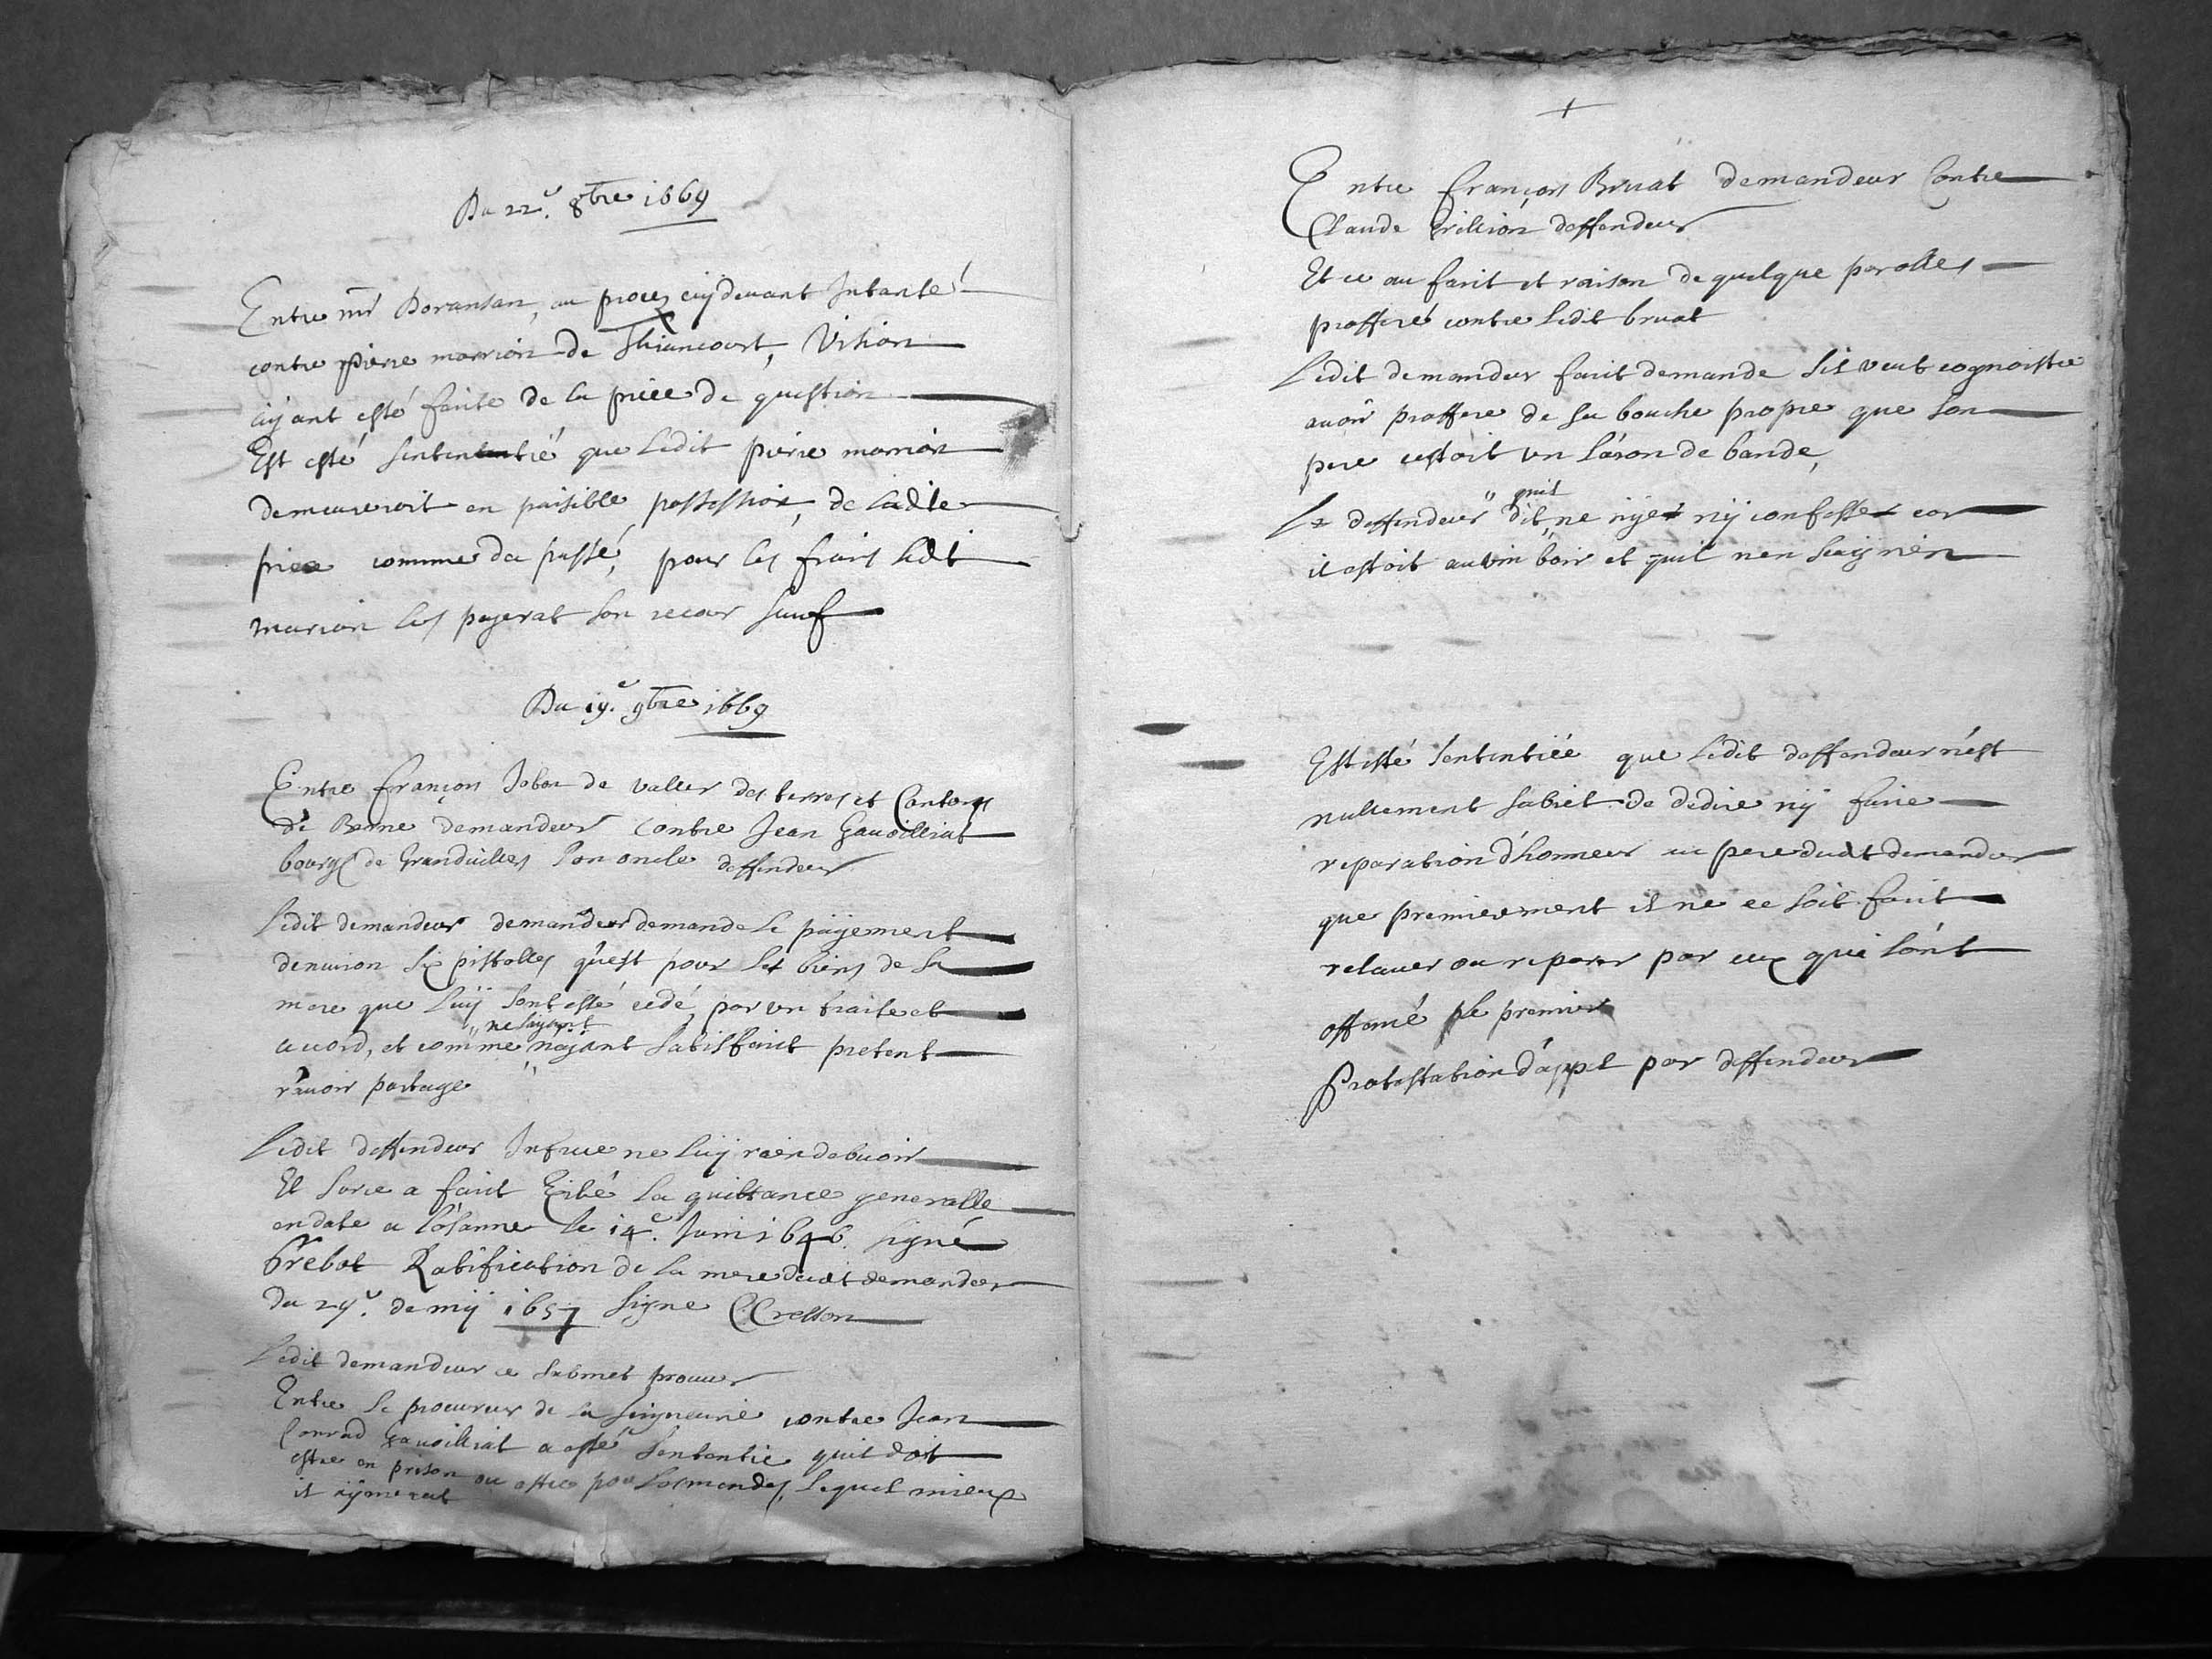 Du 22.e 8bre 1669
Entre mr Doransan, au proces cÿdevant Intanté
contre pierre marrion de Thiancourt, Vision
aÿant esté faite de la piece de question
Est esté sententié que Ledit pierre marrion
demeureroit en paisible possession, de ladite
piece comme du passé, pour les frais ledt
marion les payerat son recour sauf
Du 19.e 9bre 1669
Entre françois Jobar de valler des terres et Cantons
de Berne demandeur contre Jean Gavoilliat
bourgs de Granduilles son oncle deffendeur
Ledit demandeur demandeur demande le paÿement
denuiron six pistolles quest pour les biens de sa
mere que luÿ sont esté cedé, par un traite et
acord, et comme naÿant satisfait pretent
ne laÿant
ravoir partage
Ledit deffendeur ne luÿ rien debuoir
Et sur ce a fait Exibé la quittance generalle
en date a losanne le 14.e Juin 1646. signé
Prebot Ratification de la mere dudt demandeur
du 29.e de 1657 signe C Cresson
Ledit demandeur ce submet prouuer
Entre le procureur de la seigneurie contre Jean
Conrad Gavoilliat a esté sententie quil doit
estre en prison ou estre pour les mendes, lequel mieux
il aÿmerat
+
Entre françois Bruat demandeur Contre
Claude deffendeur
Et ce au fait et raison de quelque parolles
profferé contre ledit bruat
Ledit demandeur fait demande sil veut cognoistre
avoir proffere de sa bouche propre que son
pere estoit un laron de bande,
quil
Le deffendeur dit, ne nÿer nÿ confesser car
il estoit au vin boir et quil nen scaÿ rien
Est esté sententiée que ledit deffendeur nest
nullement subiet de dedire nÿ faire
reparation d'honneur au pere dudt demandeur
que premierement il ne ce soit fait
relauer ou reparer par eux qui lont
offancé le premier
Protestation dappel par deffendeur